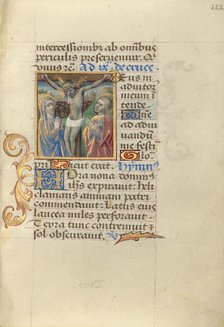 122
intercessionibz ab omnibus
periculis preseruemur. Q
uiuus &c. Ad ix de cruce
Eus in
adiutor
meum in
tende.
Dñe
ad adiu
uandū
me festi
Glo.
pri Sicut erat. Hymn⁹
Ora nona domin⁹
ihs expirauit: heli
clamans animam patri
commendauit: Latus eius
lancea miles perforauit.
Terra tunc contremuit et
sol obscurauit.